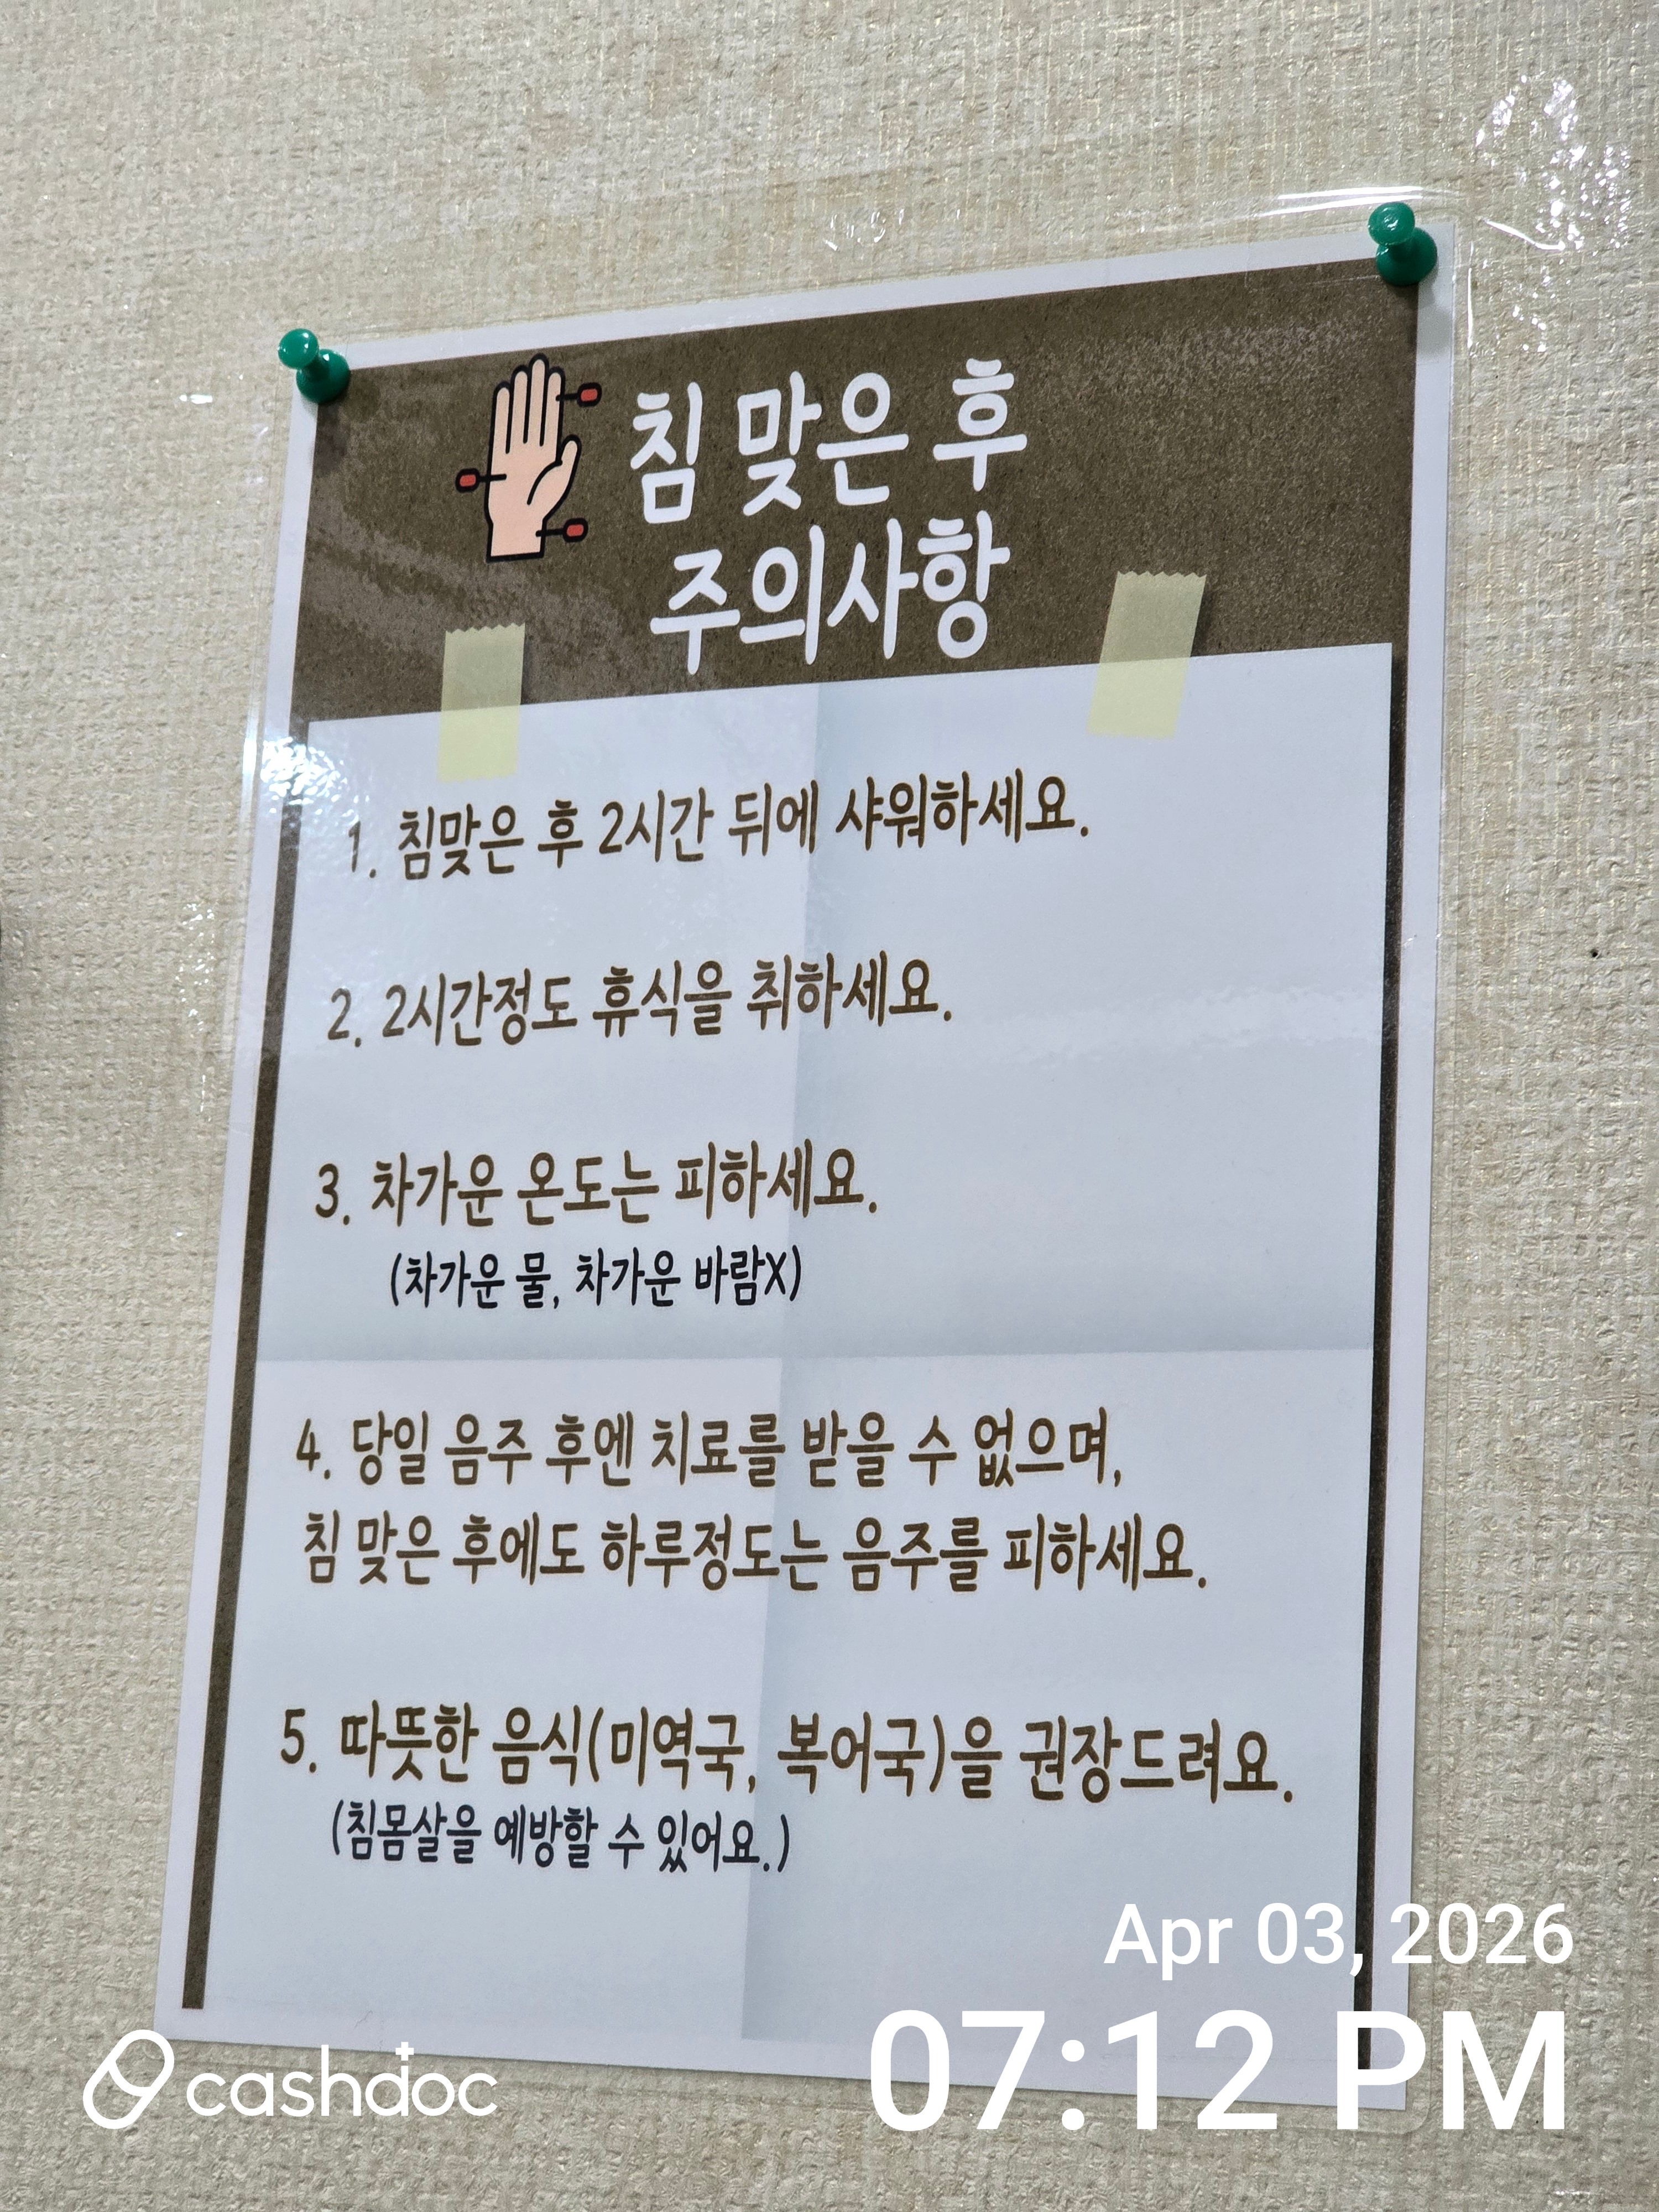 침 맞은 후
주의사항
1. 침맞은 후 2시간 뒤에 샤워하세요.
2. 2시간정도 휴식을 취하세요.
3. 차가운 온도는 피하세요.
(차가운 물, 차가운 바람X)
4. 당일 음주 후엔 치료를 받을 수 없으며,
침 맞은 후에도 하루정도는 음주를 피하세요.
5. 따뜻한 음식(미역국, 복어국)을 권장드려요.
(침몸살을 예방할 수 있어요.)
Apr 03, 2026
07:12 PM
cashdoc